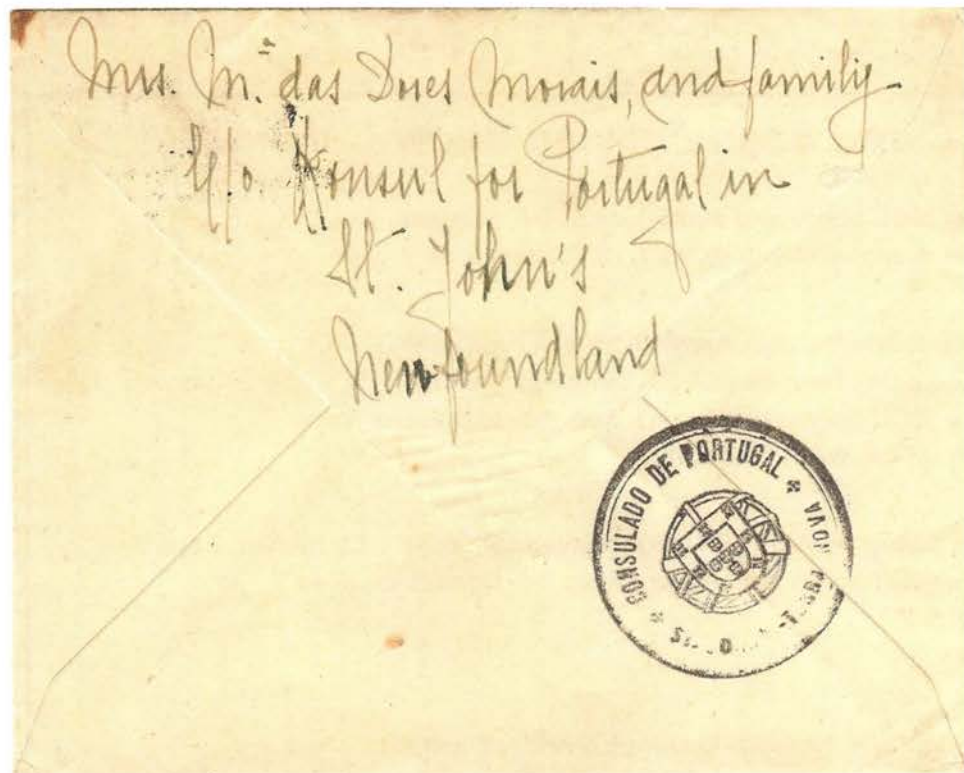 Mrs. M.ª das Dores Morais, and family
c/o. Konsul for Portugal in
St. John's
Newfoundland
CONSULADO DE PORTUGAL * NOVA